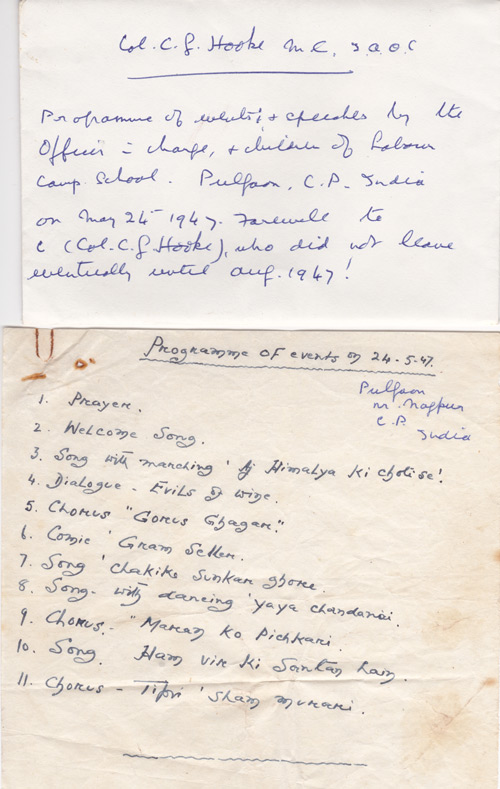 Col. C. G. Hooke M.C, I.A.O.C
Programme of events & speeches by the
Officer in charge, & children of Labour
Camp School. Pulgaon, C.P. India
on May 24th 1947. Farewell to
C (Col. C. G Hooke), who did not leave
eventually until Aug. 1947!
Programme of events on 24-5-47.
Pulgaon
nr. Nagpur
C.P.
India
1. Prayer.
2. Welcome Song.
3. Song with marching 'Aj Himalya ki choti se'.
4. Dialogue - Evils of wine.
5. Chorus "Gorus Ghagar".
6. Comic 'Gram Seller.
7. Song 'Chakike Sunkar ghore.
8. Song - with dancing 'yaya chandanai.
9. Chorus. - "Maran Ko Pichkari.
10. Song. Ham vir ki Santan ham.
11. Chorus - Tipri 'Sham murari.